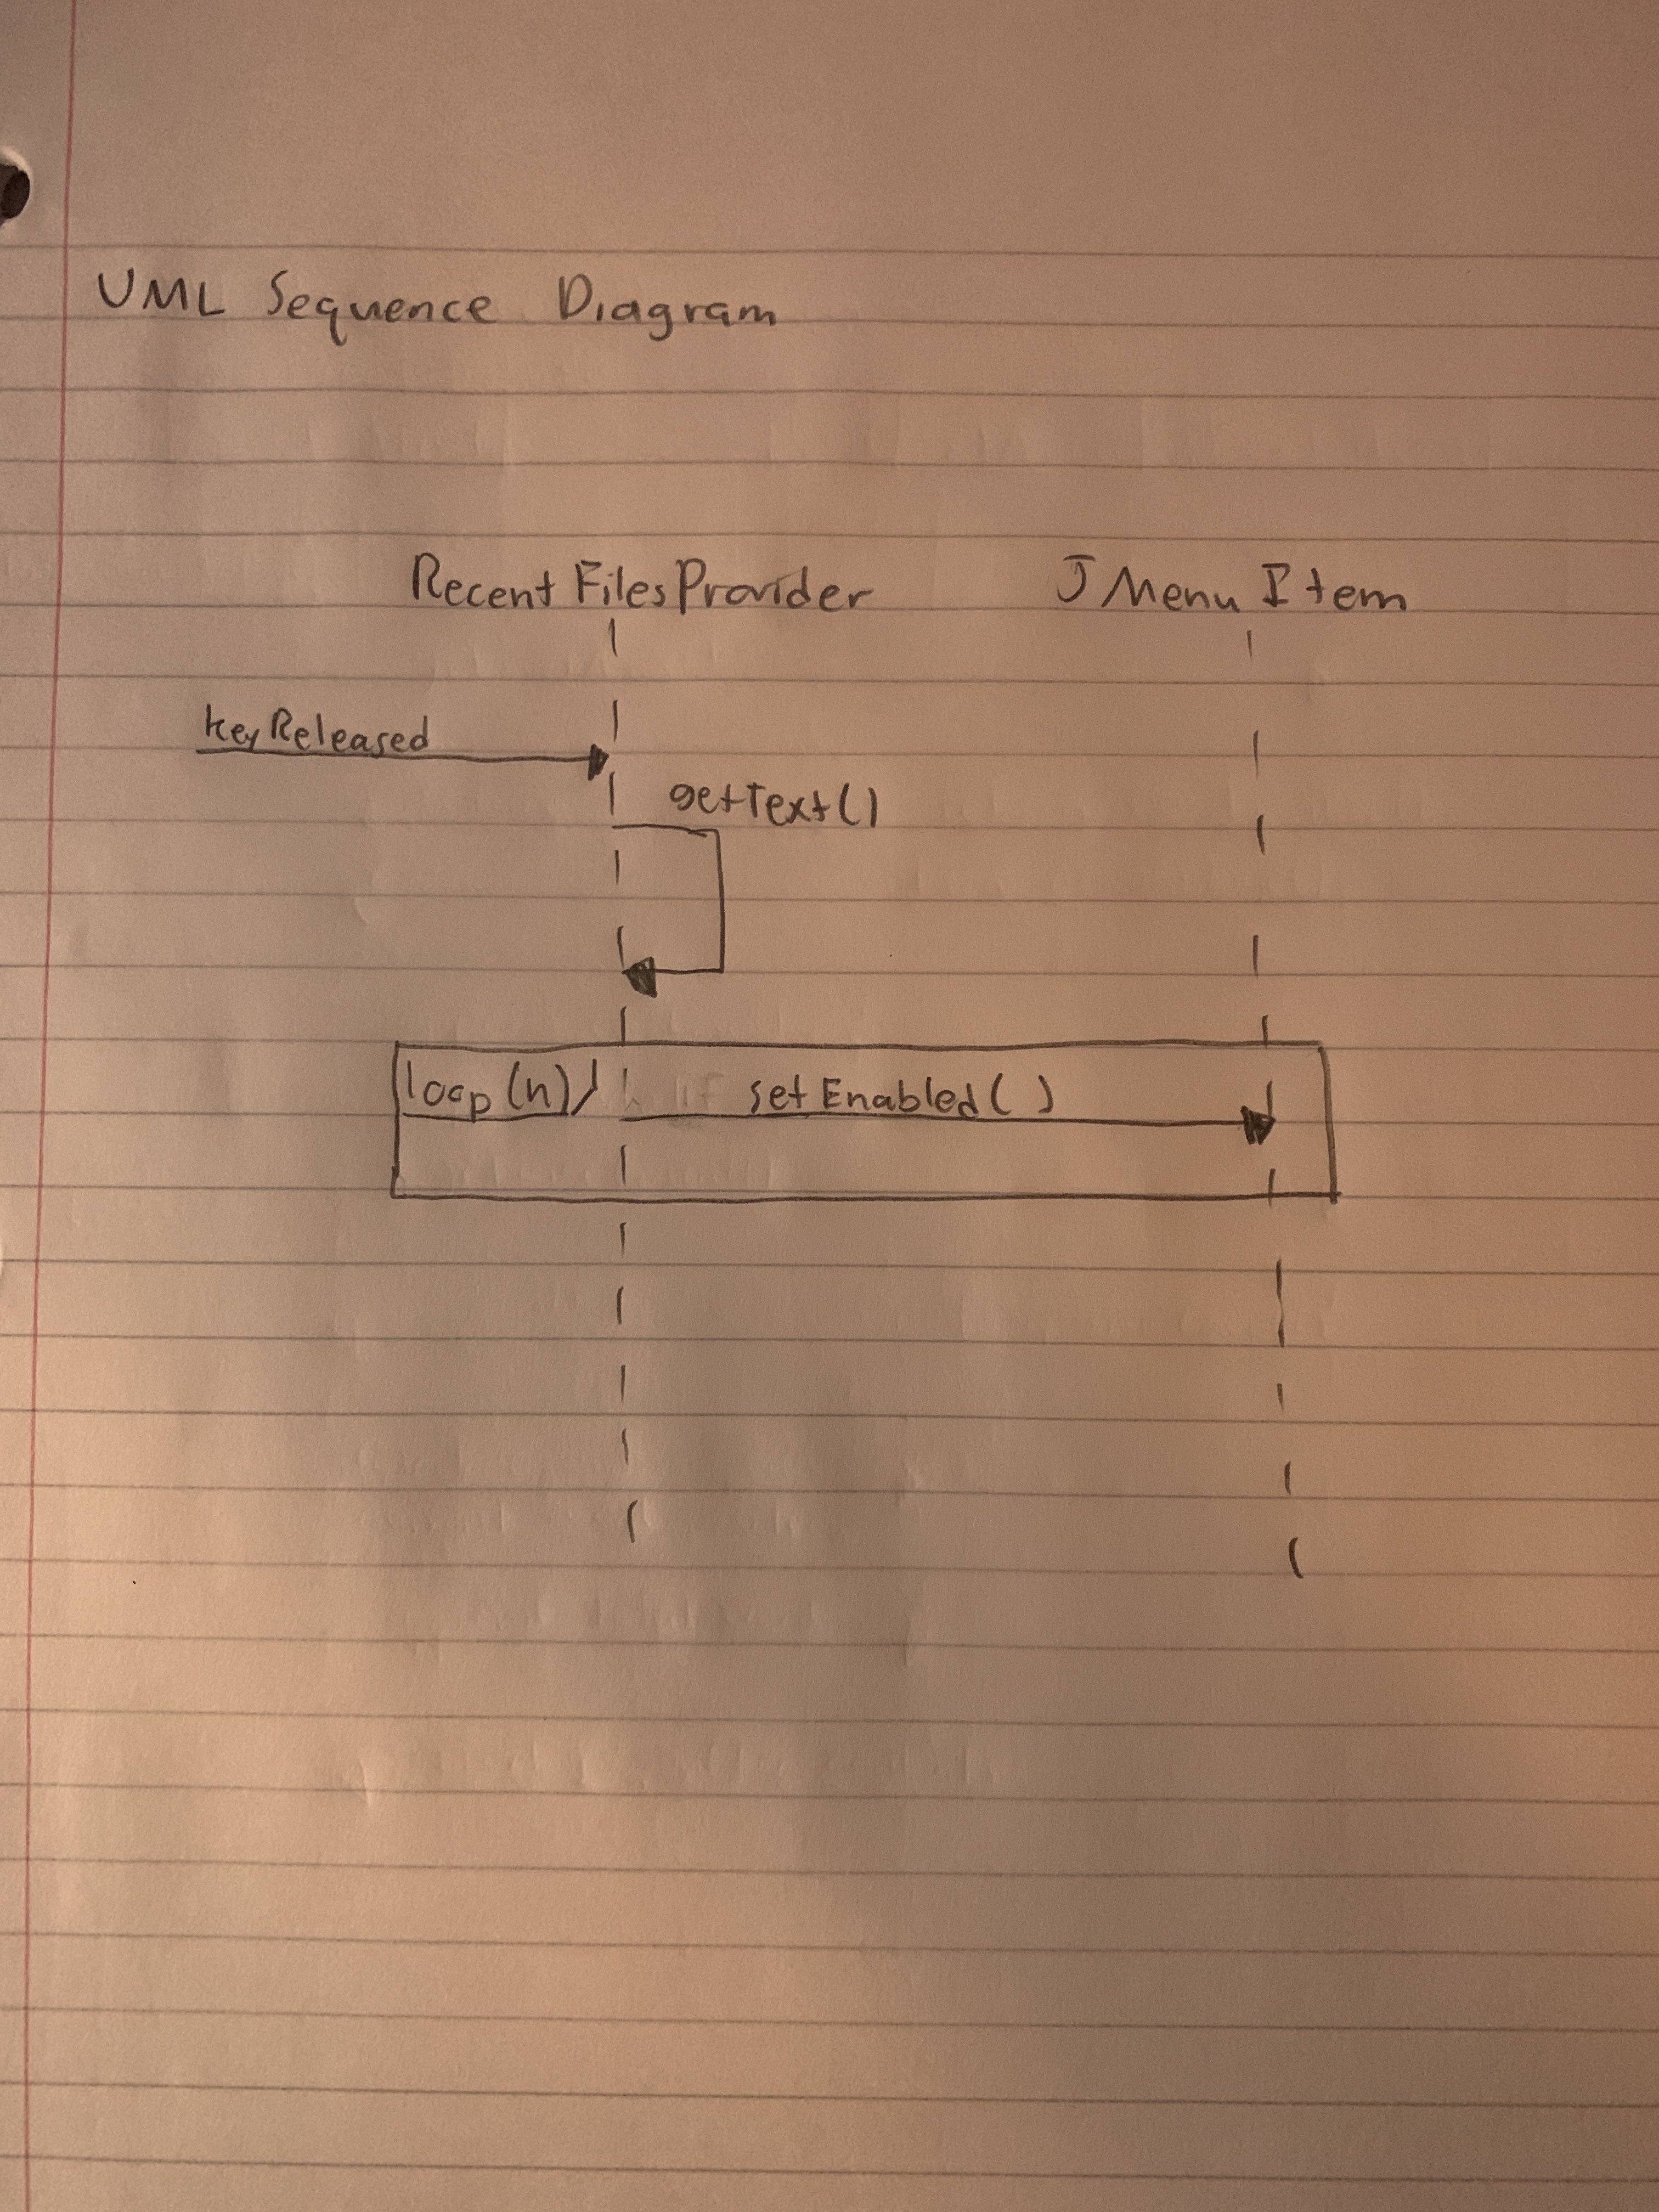 UML Sequence Diagram
RecentFilesProvider JMenuItem
keyReleased
getText()
loop(n) setEnabled()